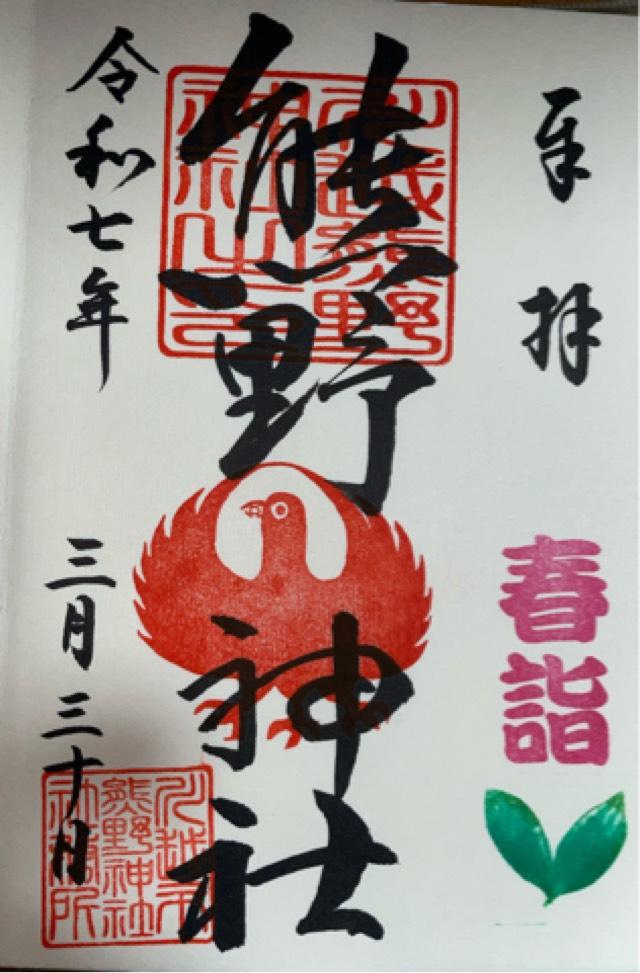 奉拝
春詣
熊野神社
川越熊野
神社之印
令和七年
三月三十日
川越市
熊野神社
社務所